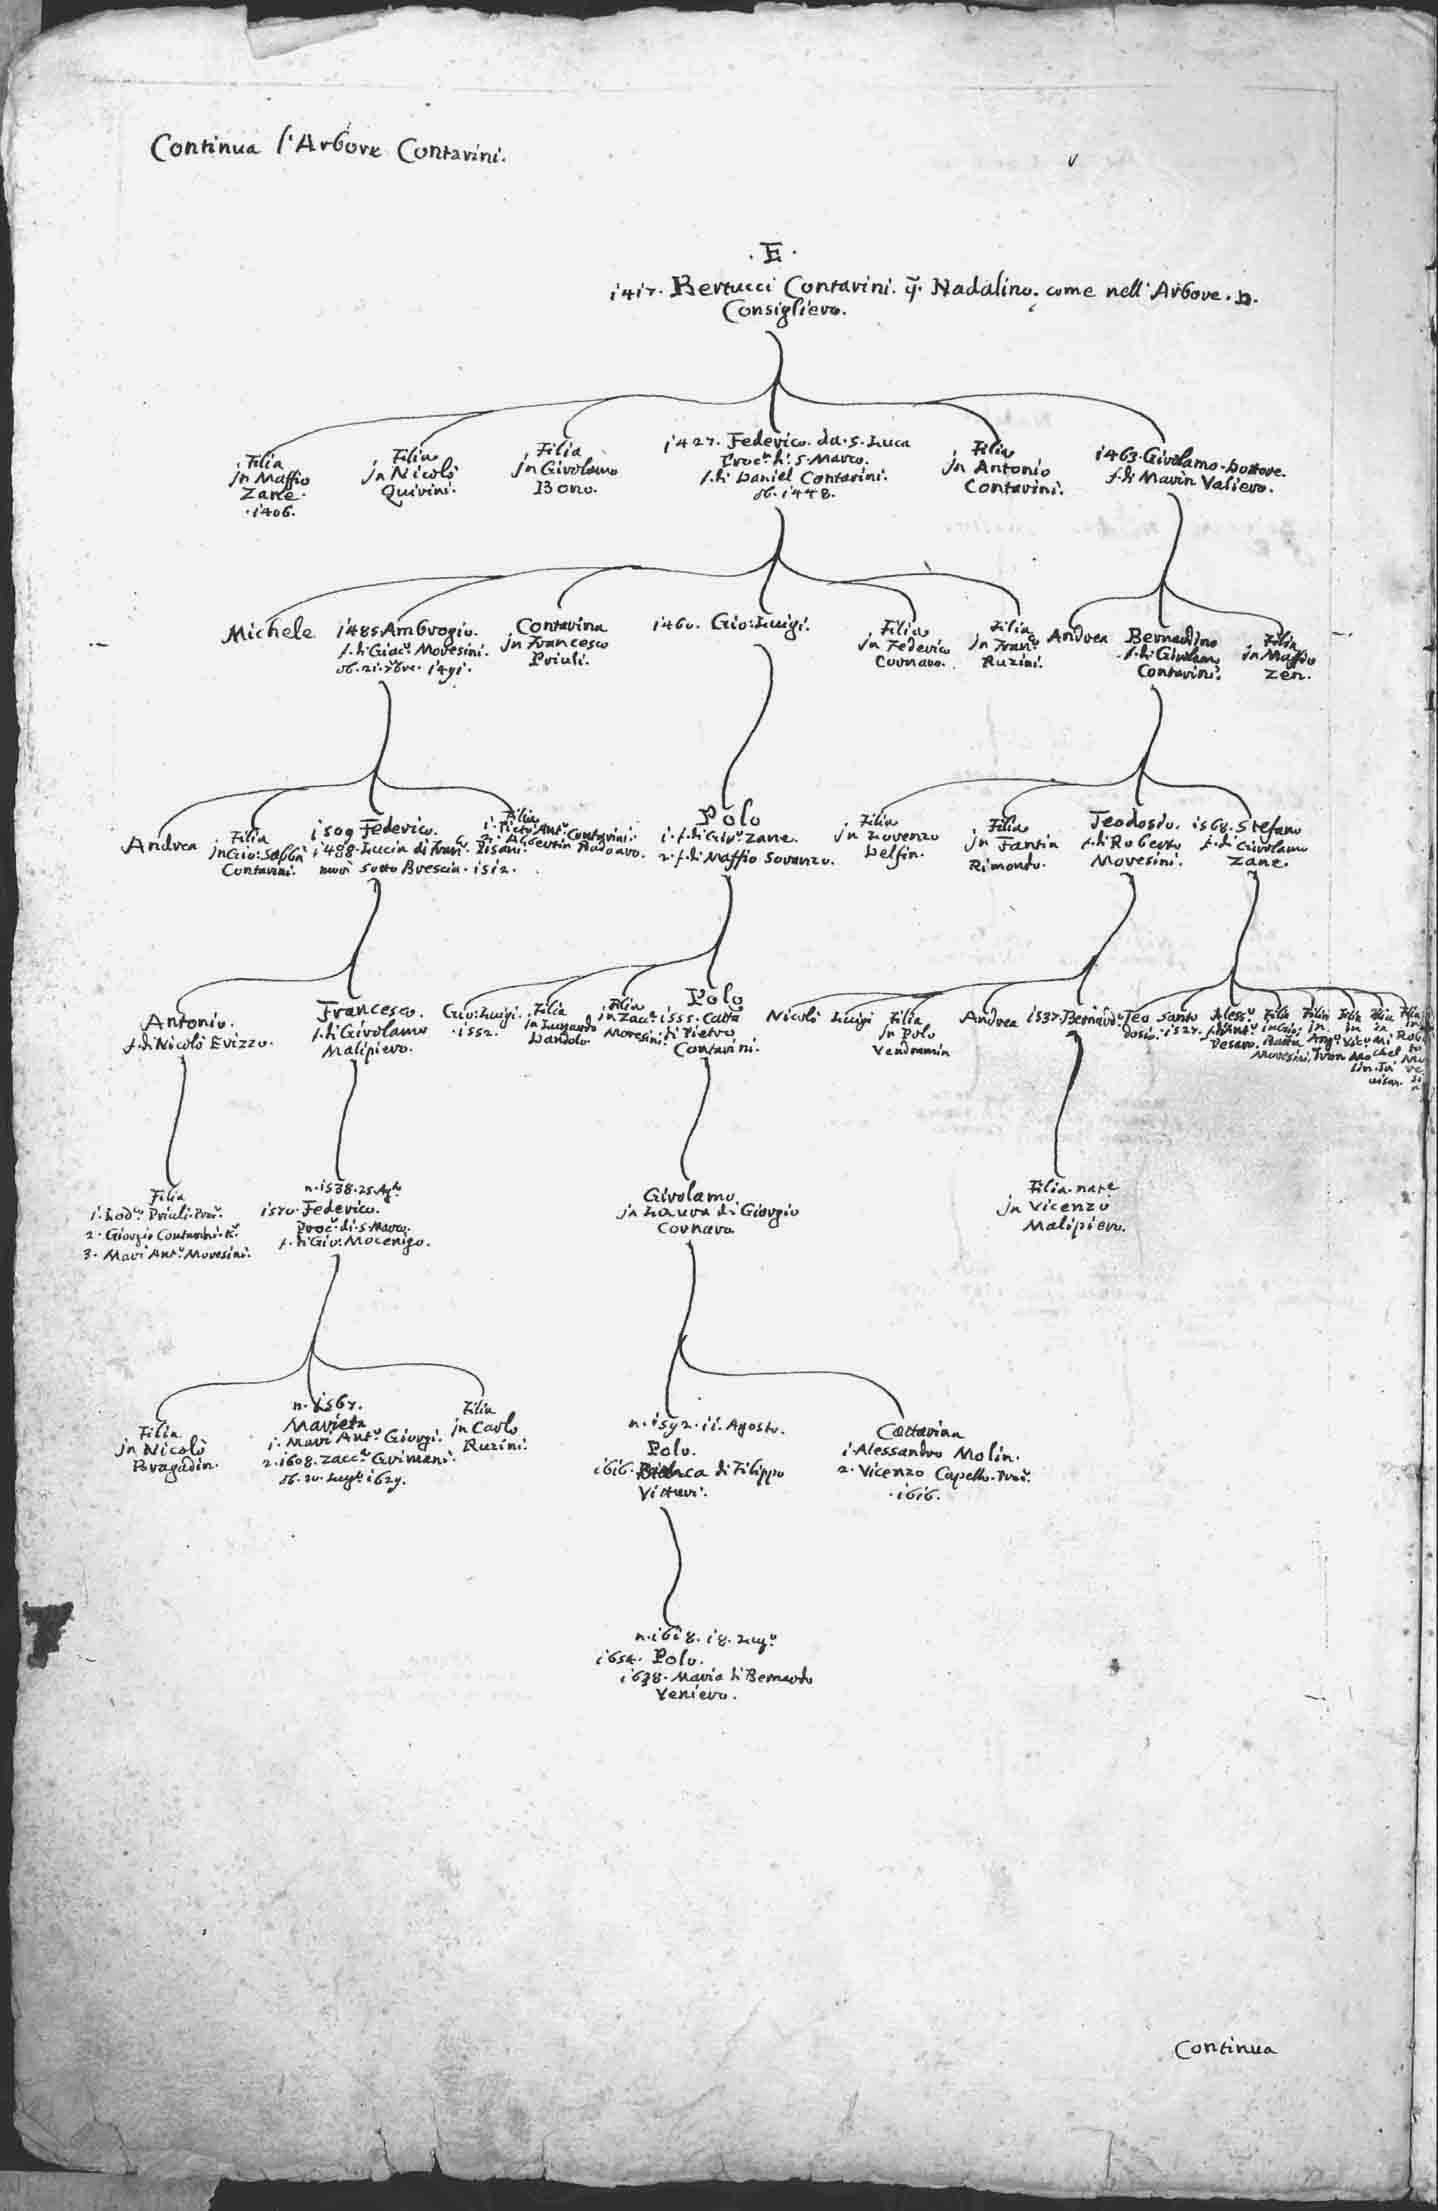 Continua l'Arbore Contarini.
.E.
1417. Bertucci Contarini. q. Nadalino. come nell'Arbore. D.
Consigliero.
Filia
jn Maffio
Zane.
.1406.
Filia
jn Nicolò
Quirini.
Filia
jn Girolamo
Bono.
1427. Federico. da. S. Luca
Proc.r di. S. Marco.
f. di Daniel Contarini.
ob. 1448.
Filia
jn Antonio
Contarini.
1463. Girolamo. Dottore.
f. di Marin Valiero.
Michele
1485 Ambrogio.
f. di Giac.o Moresini.
ob. 21. 1491.
Contarina
jn Francesco
Priuli.
1460. Gio: Luigi.
Filia
jn Federico
Cornaro.
Filia
jn Fran.co
Ruzini.
Andrea
Bernardino
f. di Girolamo
Contarini.
Filia
jn Maffio
Zen.
Andrea
Filia
jn Gio: Sabbà
Contarini.
1509 Federico.
1488. Lucia di Fran.co Pisani.
morì sotto Brescia. 1512.
Filia
1. Pietro Ant.o Contarini.
2. Albertin Badoaro.
Polo
1. f. di Gio: Zane.
2. f. di Maffio Soranzo.
Filia
jn Lorenzo
Delfin.
Filia
jn Fantin
Rimondo.
Teodosio.
f. di Roberto
Moresini.
1568. Stefano
f. di Girolamo
Zane.
Antonio.
f. di Nicolò Erizzo.
Francesco.
f. di Girolamo
Malipiero.
Gio: Luigi.
.1552.
Filia
jn Lunardo
Dandolo
Filia
jn Zacc.a
Moresini.
Polo
1555. Catta
di Pietro
Contarini.
Nicolò
Luigi
Filia
jn Polo
Vendramin
Andrea
1537. Bernard.o
Teo
dosio.
Santo
.1527.
Aless.o
f. di Ant.o
Pesaro.
Filia
Moresini.
Filia
jn
Filia
jn
Filia
jn
Filia
Filia
1. Lod.o Priuli. Proc.r
2. Giorgio Contarini. K.r
3. Marc'Ant.o Moresini.
n. 1538. 25. Ag.to
1570. Federico.
Proc.r di. S. Marco.
f. di Gio: Mocenigo.
Girolamo
jn Laura di Giorgio
Cornaro
Filia. nat.e
jn Vicenzo
Malipiero.
Filia
jn Nicolò
Bragadin.
n. 1567.
Marieta
1. Marc'Ant.o Giorgi.
2. 1608. Zacc.a Grimani.
ob. 20. Lugl.o 1629.
Filia
jn Carlo
Ruzini.
n. 1592. 11. Agosto.
Polo.
1616. Bianca di Filippo
Vitturi.
Cattarina
1 Alessandro Molin.
2. Vicenzo Capello. Proc.r
.1616.
n. 1618. 18. Lug.o
1654. Polo.
1638. Maria di Bernardo
Veniero.
Continua